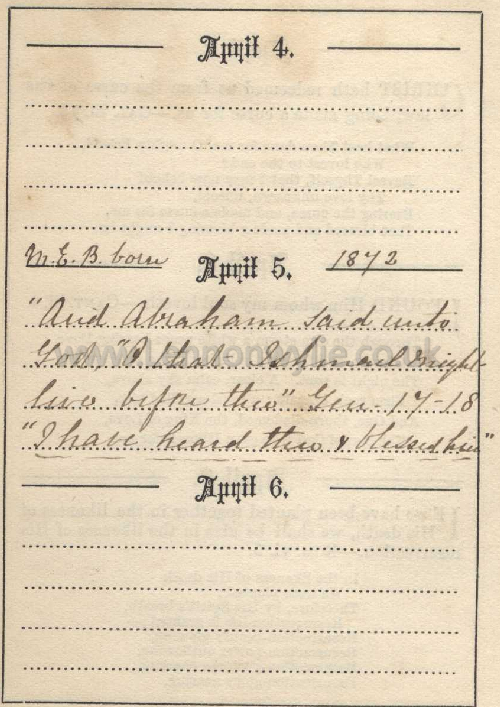 April 4.
M.E.B. born April 5. 1872
"And Abraham said unto
God, "O that Ishmael might
live before thee" Gen-17-18
"I have heard thee & blessed him"
April 6.
www.Lennonwylie.co.uk